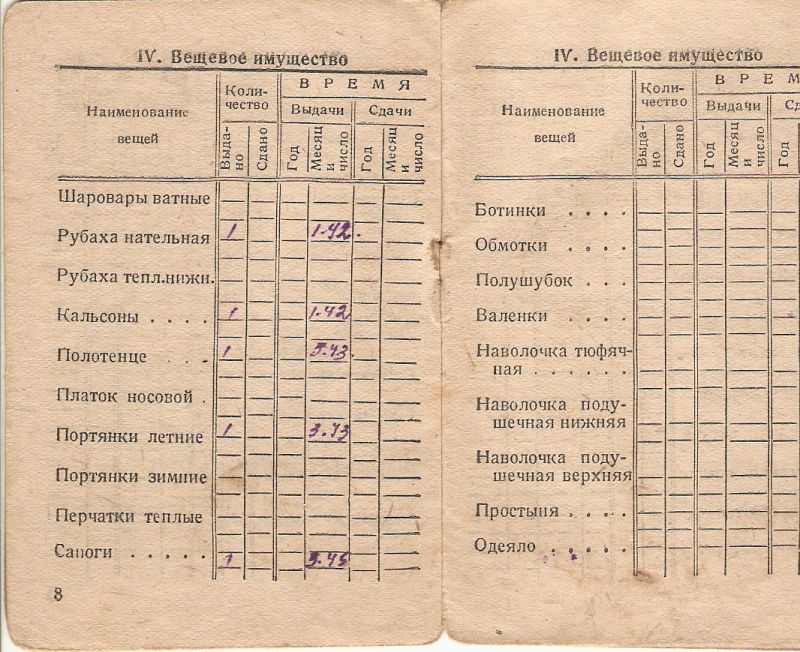 IV. Вещевое имущество
Наименование вещей
Количество
ВРЕМЯ
Выдачи
Сдачи
Выдано
Сдано
Год
Месяц и число
Год
Месяц и число
Шаровары ватные
Рубаха нательная 1 1.42.
Рубаха тепл.нижн.
Кальсоны . . . . 1 1.42
Полотенце . . . 1 5.43.
Платок носовой .
Портянки летние 1 3.43
Портянки зимние
Перчатки теплые
Сапоги . . . . . 1 5.45
8
IV. Вещевое имущество
Наименование
вещей
Коли-
чество
ВРЕМ
Выдачи
Сд
Выда-
но
Сдано
Год
Месяц
и
число
Год
Ботинки . . . .
Обмотки . . . .
Полушубок . . .
Валенки . . . .
Наволочка тюфяч-
ная . . . . . .
Наволочка поду-
шечная нижняя
Наволочка поду-
шечная верхняя
Простыня . . . .
Одеяло . . . . .